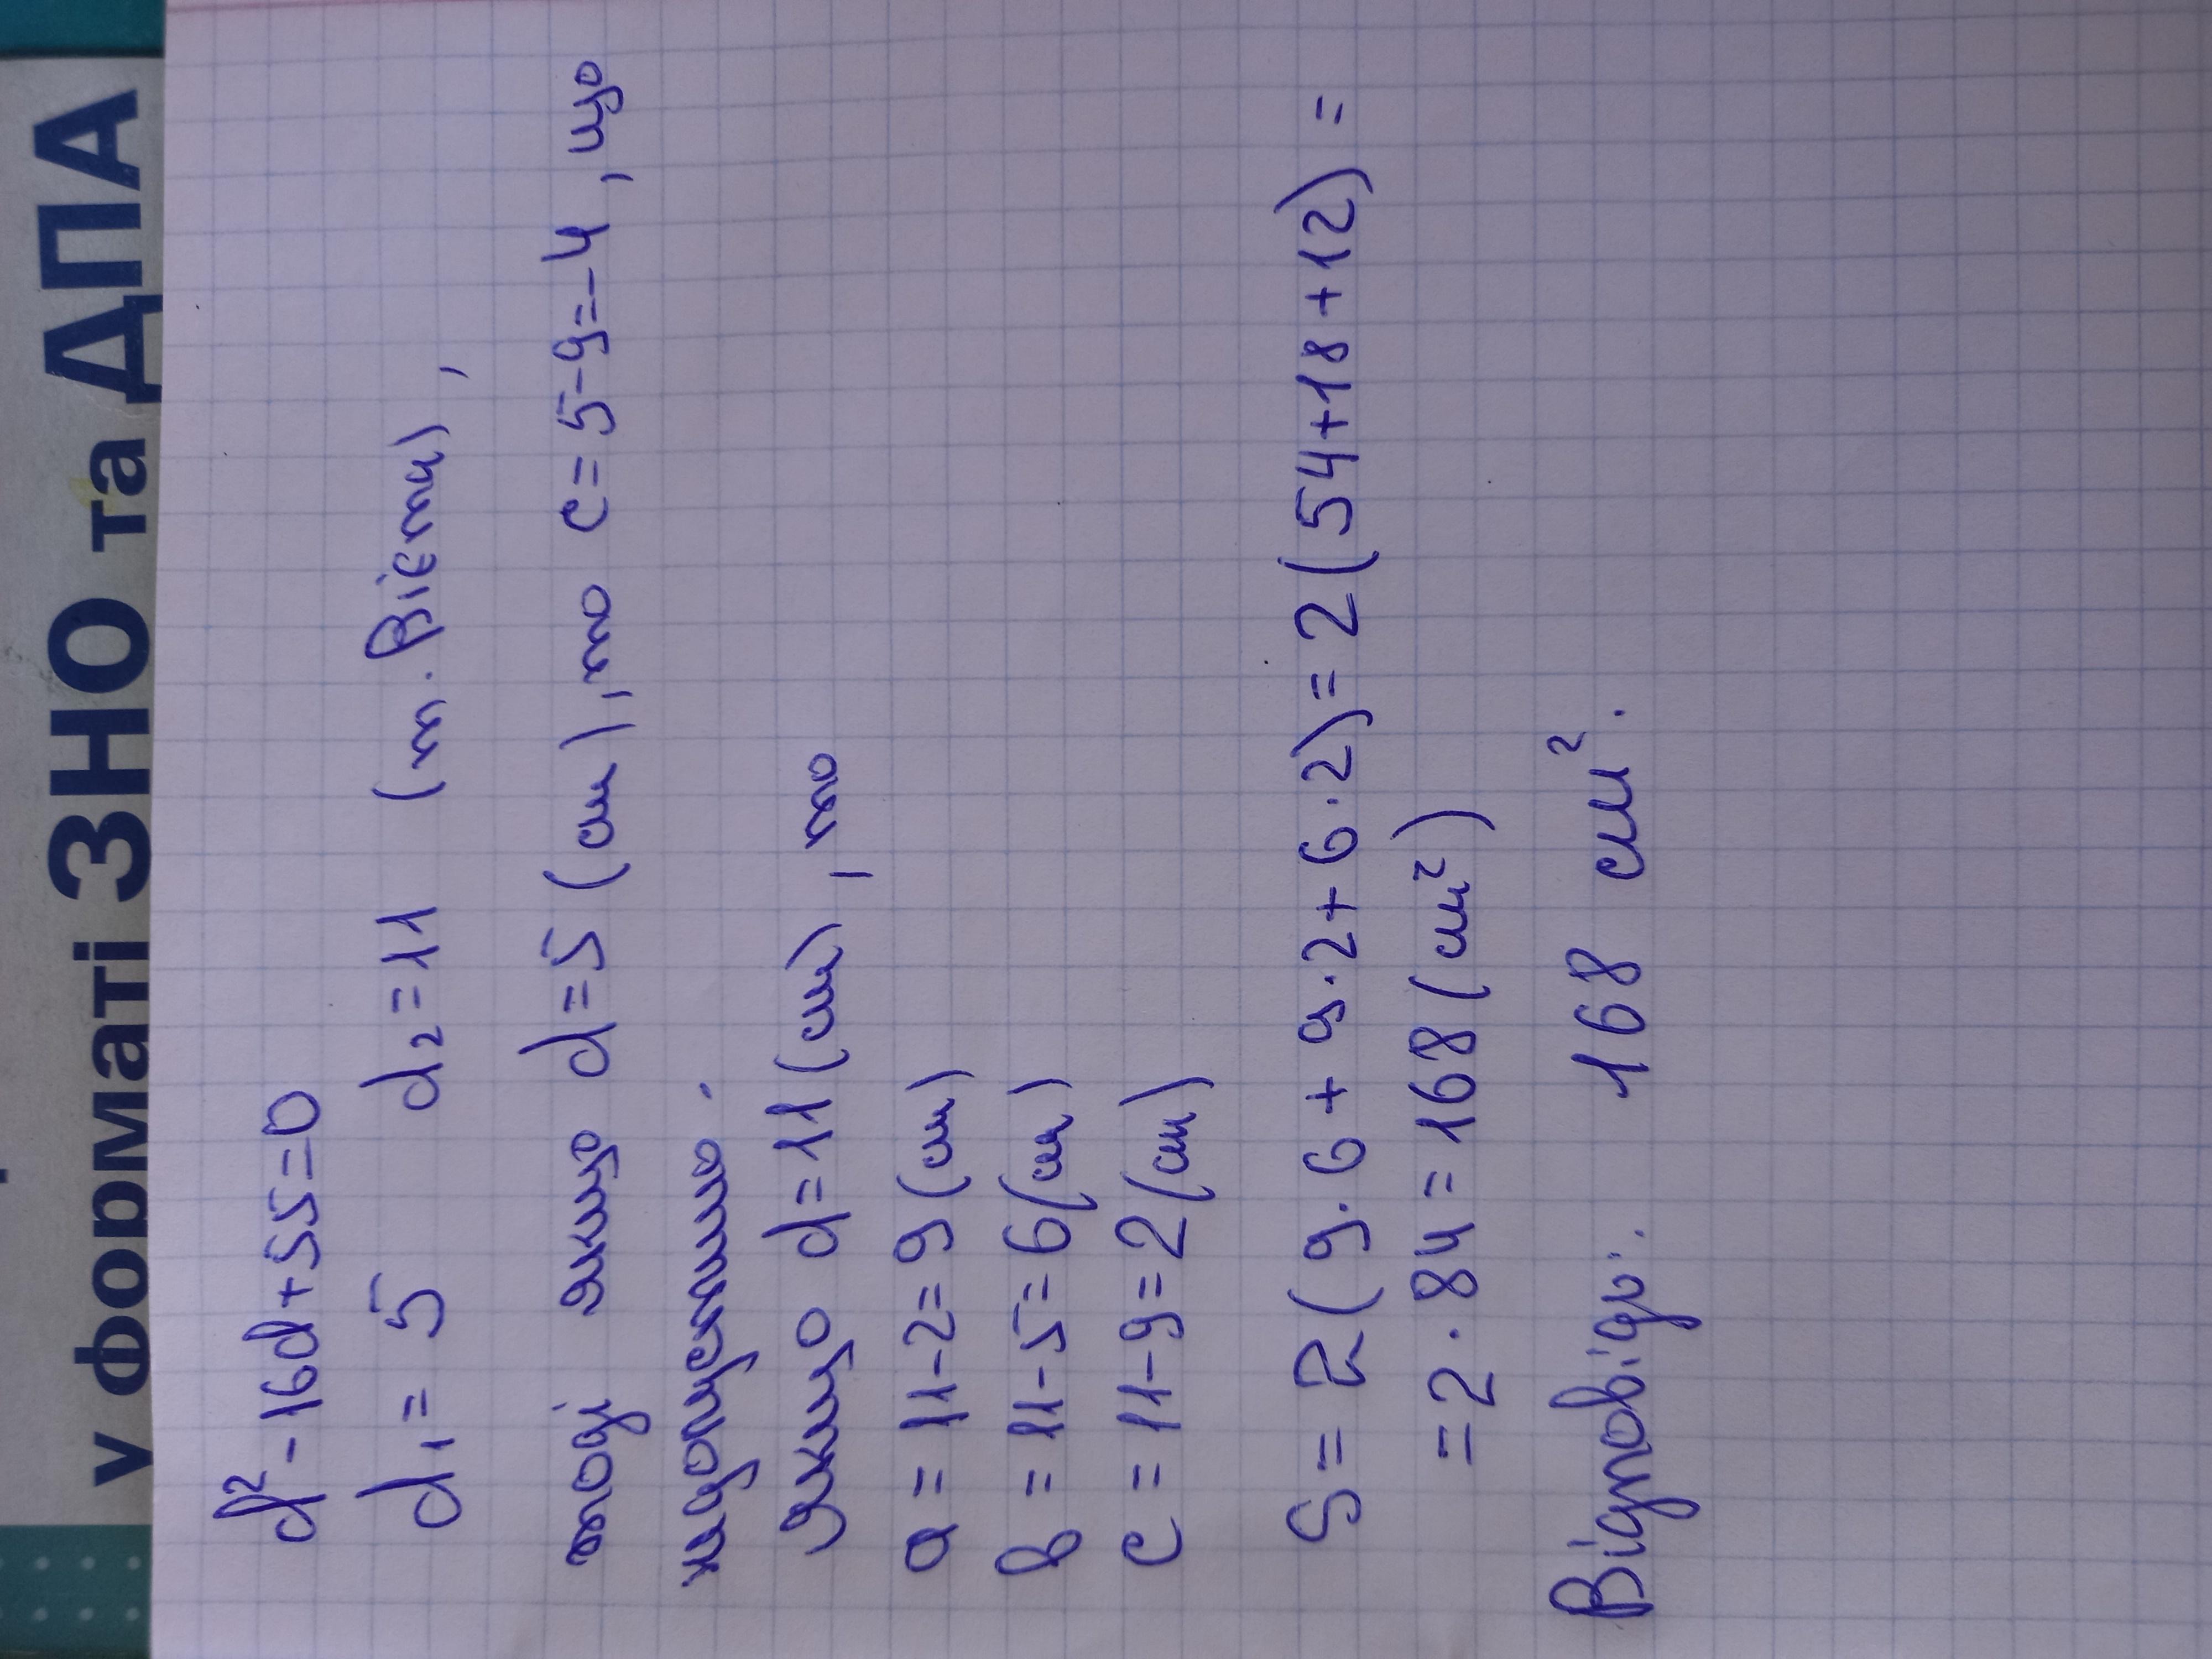 у форматі ЗНО та ДПА
d² - 16d + 55 = 0
d₁ = 5 d₂ = 11 (т. Вієта),
тоді якщо d = 5 (см), то c = 5 - 9 = -4, що
не задовольняє.
якщо d = 11 (см), то
a = 11 - 2 = 9 (см)
b = 11 - 5 = 6 (см)
c = 11 - 9 = 2 (см)
S = 2 (9 · 6 + 9 · 2 + 6 · 2) = 2 (54 + 18 + 12) =
= 2 · 84 = 168 (см²)
Відповідь: 168 см².